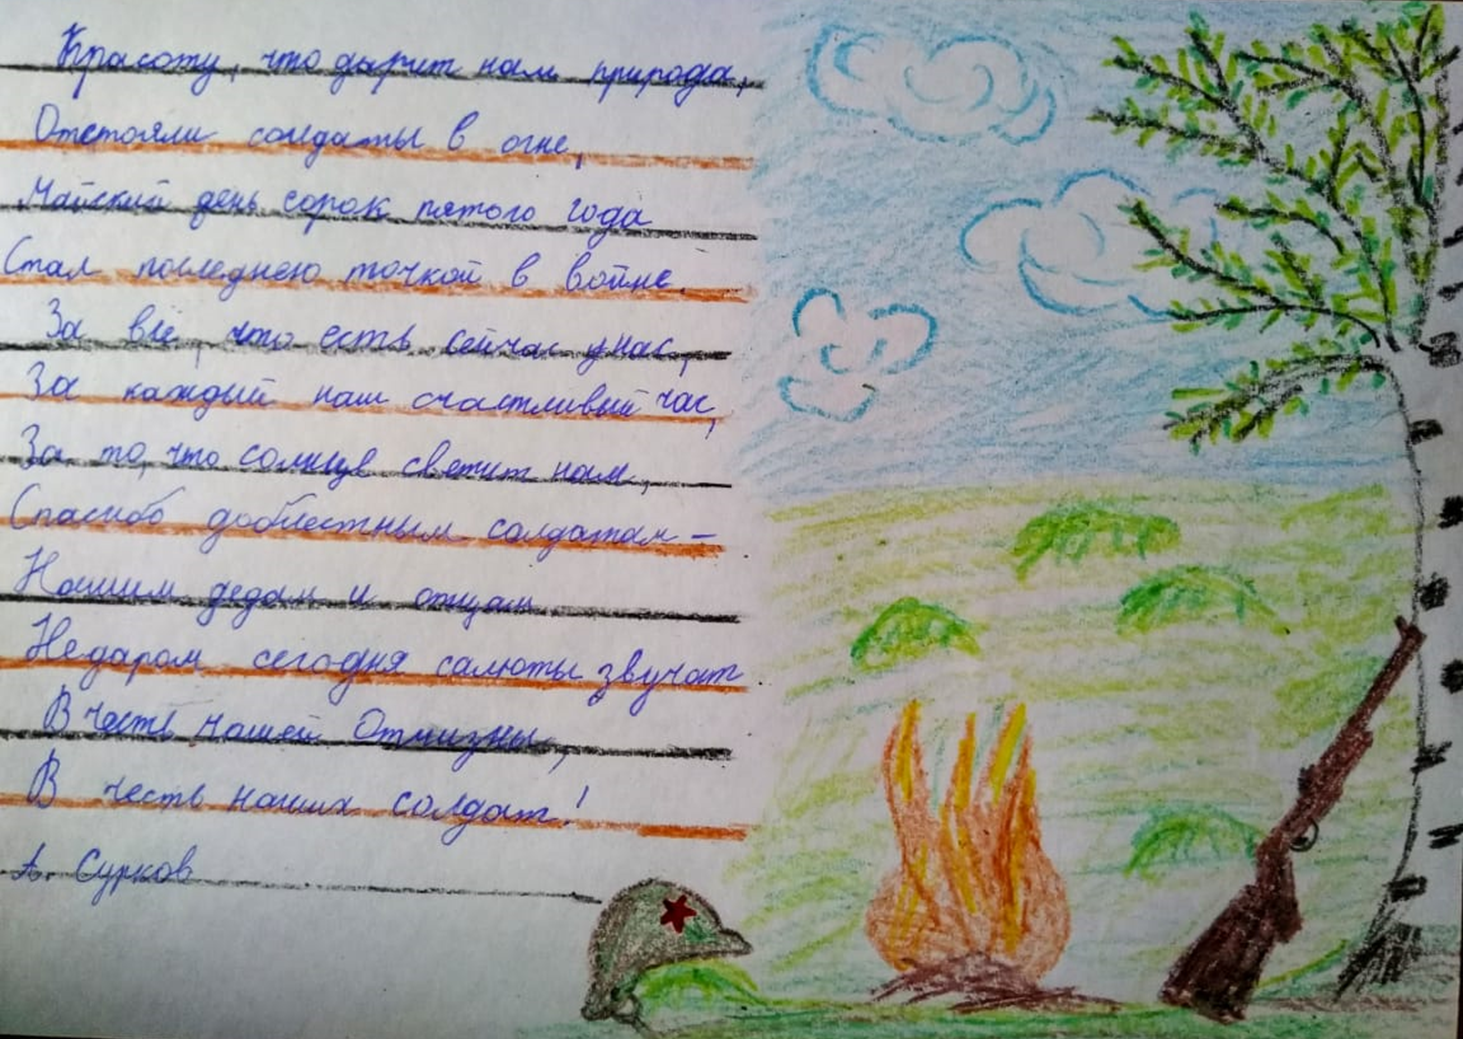 Красоту, что дарит нам природа,
Отстояли солдаты в огне,
Майский день сорок пятого года
Стал последнею точкой в войне.
За всё, что есть сейчас у нас,
За каждый наш счастливый час,
За то, что солнце светит нам,
Спасибо доблестным солдатам –
Нашим дедам и отцам
Недаром сегодня салюты звучат
В честь нашей Отчизны,
В честь наших солдат!
А. Сурков